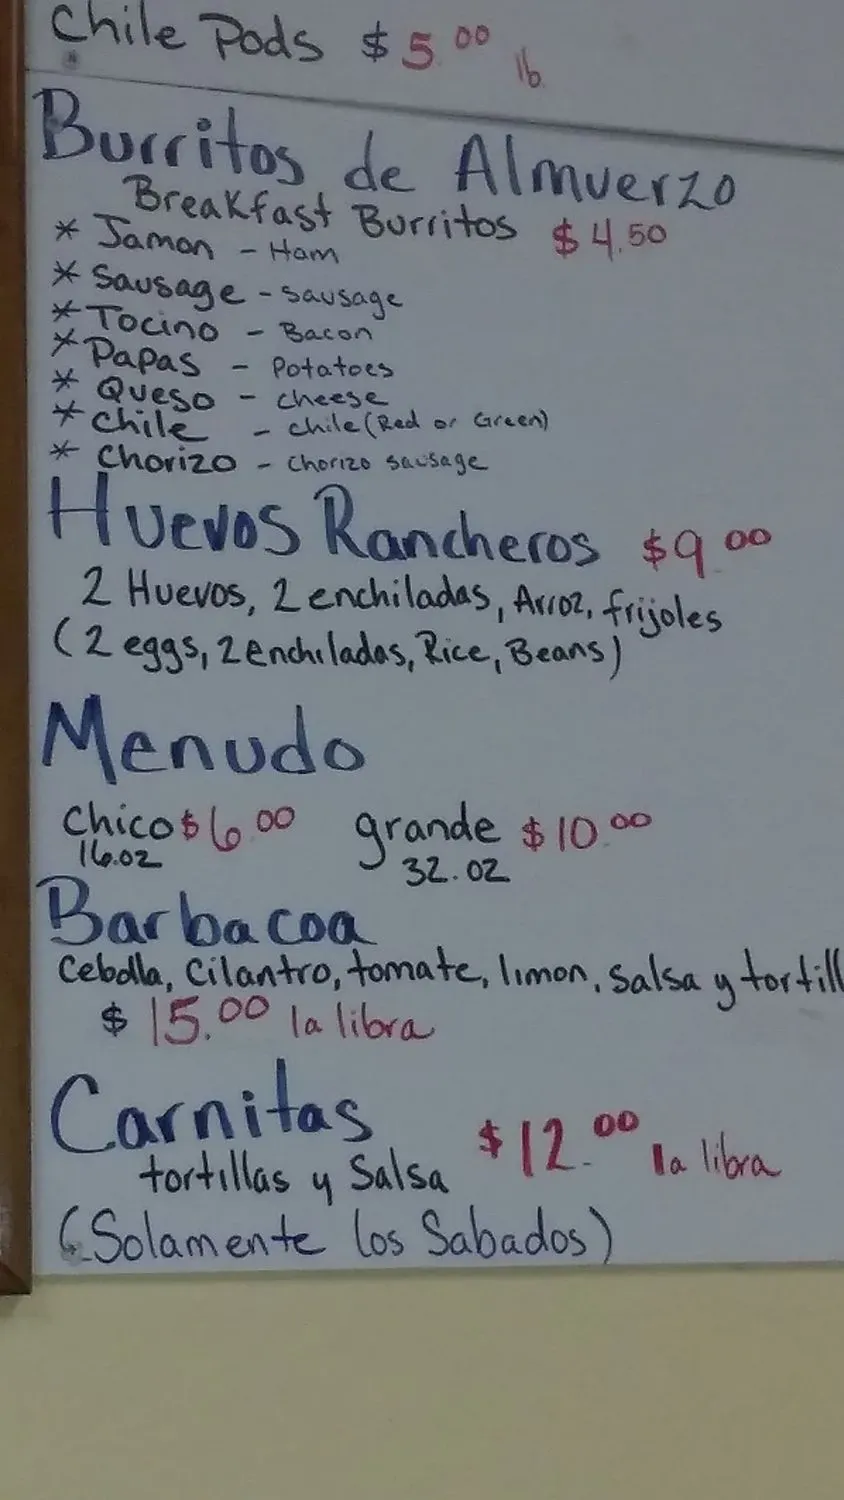 Chile Pods $5.00 lb
Burritos de Almuerzo
Breakfast Burritos $4.50
* Jamon - Ham
* Sausage - sausage
* Tocino - Bacon
* Papas - Potatoes
* Queso - cheese
* Chile - chile (Red or Green)
* Chorizo - chorizo sausage
Huevos Rancheros $9.00
2 Huevos, 2 enchiladas, Arroz, frijoles
(2 eggs, 2 enchiladas, Rice, Beans)
Menudo
Chico $6.00 grande $10.00
16.oz 32.oz
Barbacoa
Cebolla, Cilantro, tomate, limon, salsa y tortill
$15.00 la libra
Carnitas $12.00 la libra
tortillas y Salsa
(Solamente los Sabados)